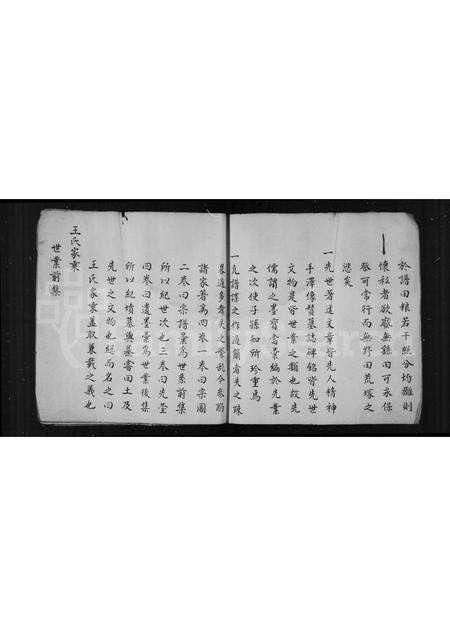 於譜田粮若干照分均攤則
懷私者欲廢無緣田可永保
祭可常行而無野田荒塚之
悲矣
一先世著述文章皆先人精神
手澤像贊墓誌碑銘皆先世
文物是皆世業之類也故先
儒謂之墨寶當彙編於先業
之次使子孫知所珍重焉
一凡譜譯之作過簡者失之疎
過多者失之繁乱今參酌
諸家著為四卷一卷曰宗圖
二卷曰宗譜彙為世系前集
所以紀世次也三卷曰先塋
四卷曰遺墨彙為世業後集
所以紀墳墓與墓書田土及
先世之文物也總而名之曰
王氏家乘蓋取兼載之義也
王氏家乘
世業前集